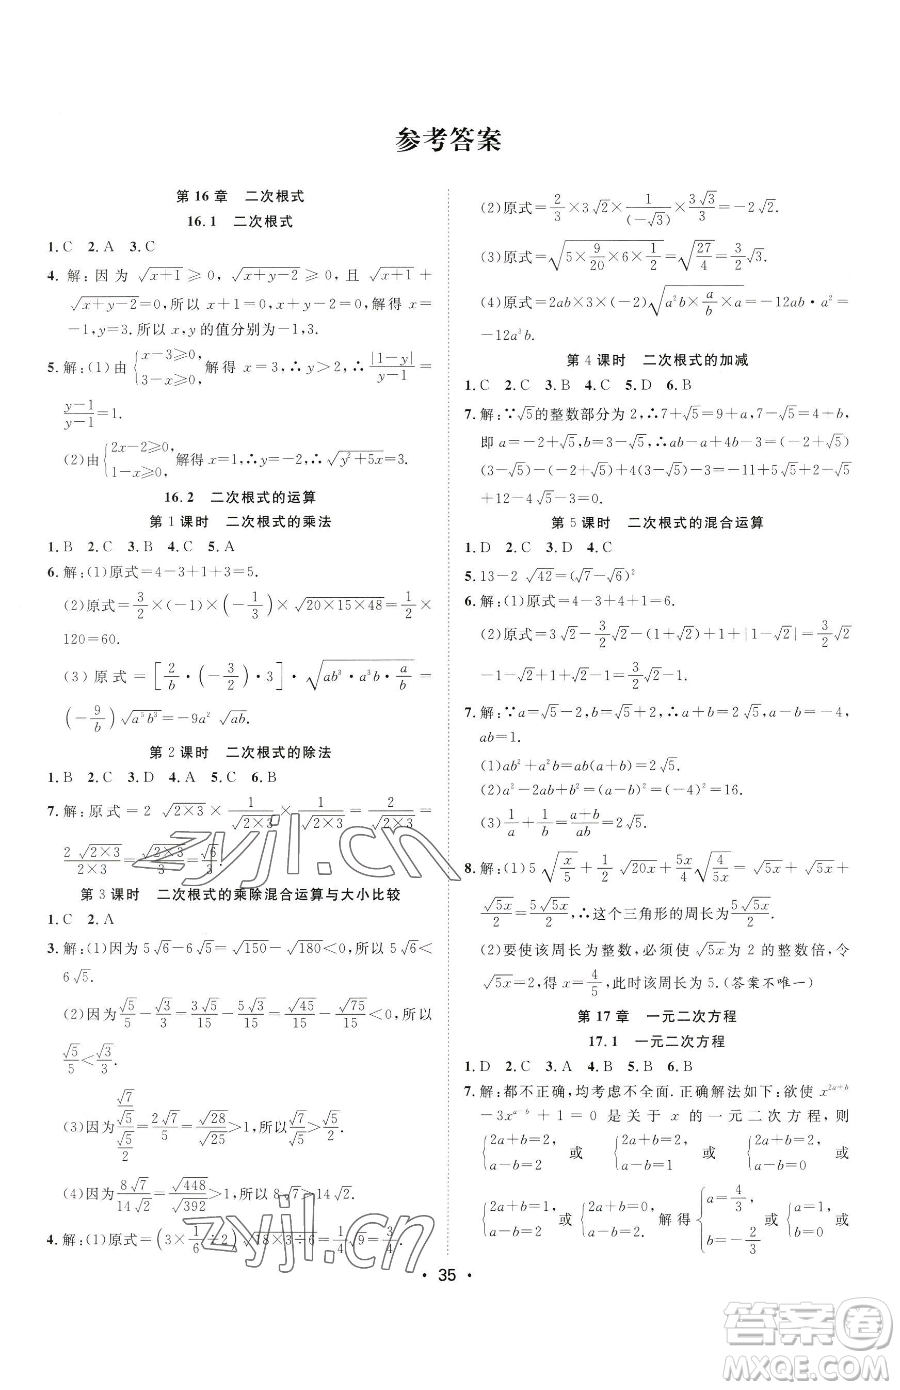 参考答案
第16章 二次根式
16.1 二次根式
1. C 2. A 3. C
4. 解:因为 √(x+1) ≥0, √(x+y-2) ≥0, 且 √(x+1) +
√(x+y-2)=0,所以 x+1=0,x+y-2=0,解得 x=-1,
y=3.所以 x,y 的值分别为-1,3.
5. 解:(1)由{x-3≥0, 3-x≥0, 解得 x=3,∴y>2,∴|1-y|/(y-1)=
(y-1)/(y-1)=1.
(2)由{2x-2≥0, 1-x≥0, 解得 x=1,∴y=4,∴√(y²+5x)=3.
16.2 二次根式的运算
第1课时 二次根式的乘法
1. B 2. C 3. B 4. C 5. A
6. 解:(1)原式=4-3+1+3=5.
(2)原式=3/2×(-1)×(-1/3)×√(20×15×48)=1/2×
120=60.
(3)原式=[2/b·(-3/2)·3]·√(ab³·a³b·a/b)=
(-9/b)√(a⁵b³)=-9a²√(ab).
第2课时 二次根式的除法
1. B 2. C 3. D 4. A 5. C 6. A
7. 解:原式=2√(2×3)×1/√(2×3)×1/√(2×3)=2/√(2×3)=
2√(2×3)/(2×3)=√(2×3)/3=√6/3.
第3课时 二次根式的乘除混合运算与大小比较
1. C 2. A
3. 解:(1)因为5√6-6√5=√150-√180<0,所以5√6<
6√5.
(2)因为√5/5-√3/3=3√5/15-5√3/15=√45/15-√75/15<0,所以
√5/5<√3/3.
(3)因为(√7/√5)/(√5/2)=2√7/5=√28/√25>1,所以√7/√5>√5/2.
(4)因为8√7/14√2=√448/√392>1,所以8√7>14√2.
4. 解:(1)原式=(3×1/6÷2)√(18×3÷6)=1/4√9=3/4.
(2)原式=2/3×3√2×1/(-√3)×3√3/3=-2√2.
(3)原式=√(5×9/20×6×1/2)=√(27/4)=3√3/2.
(4)原式=2ab×3×(-2)√(a²b×a/b×a)=-12ab·a²=
-12a³b.
第4课时 二次根式的加减
1. C 2. C 3. B 4. C 5. D 6. B
7. 解:∵√5的整数部分为2,∴7+√5=9+a,7-√5=4+b,
即a=-2+√5,b=3-√5,∴ab-a+4b-3=(-2+√5)
(3-√5)-(-2+√5)+4(3-√5)-3=-11+5√5+2-√5
+12-4√5-3=0.
第5课时 二次根式的混合运算
1. D 2. D 3. B 4. C
5. 13-2√42=(√7-√6)²
6. 解:(1)原式=4-3+4+1=6.
(2)原式=3√2-3/2√2-(1+√2)+1+|1-√2|=3/2√2
-1-1-√2+1+√2-1=3/2√2-2.
7. 解:∵a=√5-2,b=√5+2,∴a+b=2√5,a-b=-4,
ab=1.
(1)ab²+a²b=ab(b+a)=2√5.
(2)a²-2ab+b²=(a-b)²=16.
(3)1/a+1/b=(a+b)/ab=2√5.
8. 解:(1)5√(x/5)+1/2√(20x)+5x/4√(4/5x)=√(5x)+√(5x)+
√(5x)/2=5√(5x)/2,∴这个三角形的周长为5√(5x)/2.
(2)要使该周长为整数,必须使√(5x)为2的整数倍,令
√(5x)=2,解得x=4/5,此时该周长为5.(答案不唯一)
第17章 一元二次方程
17.1 一元二次方程
1. D 2. C 3. A 4. B 5. B 6. C
7. 解:都不正确,均考虑不全面.正确解法如下:欲使 x²ᵃ⁺ᵇ
-3xᵃ⁻ᵇ+1=0 是关于 x 的一元二次方程,则
{2a+b=2, a-b=2 或 {2a+b=2, a-b=1 或 {2a+b=1, a-b=2 或
{2a+b=2, a-b=0 或 {2a+b=0, a-b=2, 解得 {a=4/3, b=-2/3 或 {a=1, b=0
• 35 •
zyjl.cn
zyjl.cn
答案圈
MXQE.COM